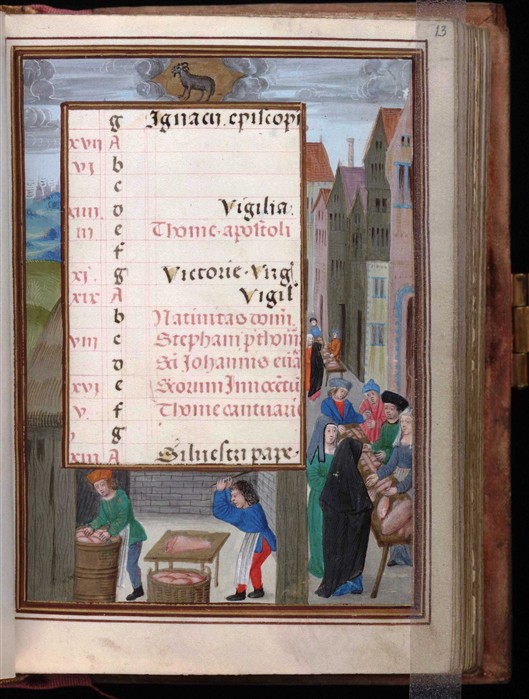 13
g Ignacii episcopi
xvij A
vj b
c
xiiij d Vigilia.
iij e Thome apostoli
f
xj g Victorie Virg
xix A Vigil
b Nativitas domi
viij c Stephani p thom
d Sci Johannis eua
xvj e Scorum Innocetu
v f Thome cantuarie
g
xiij A Silvestri pape